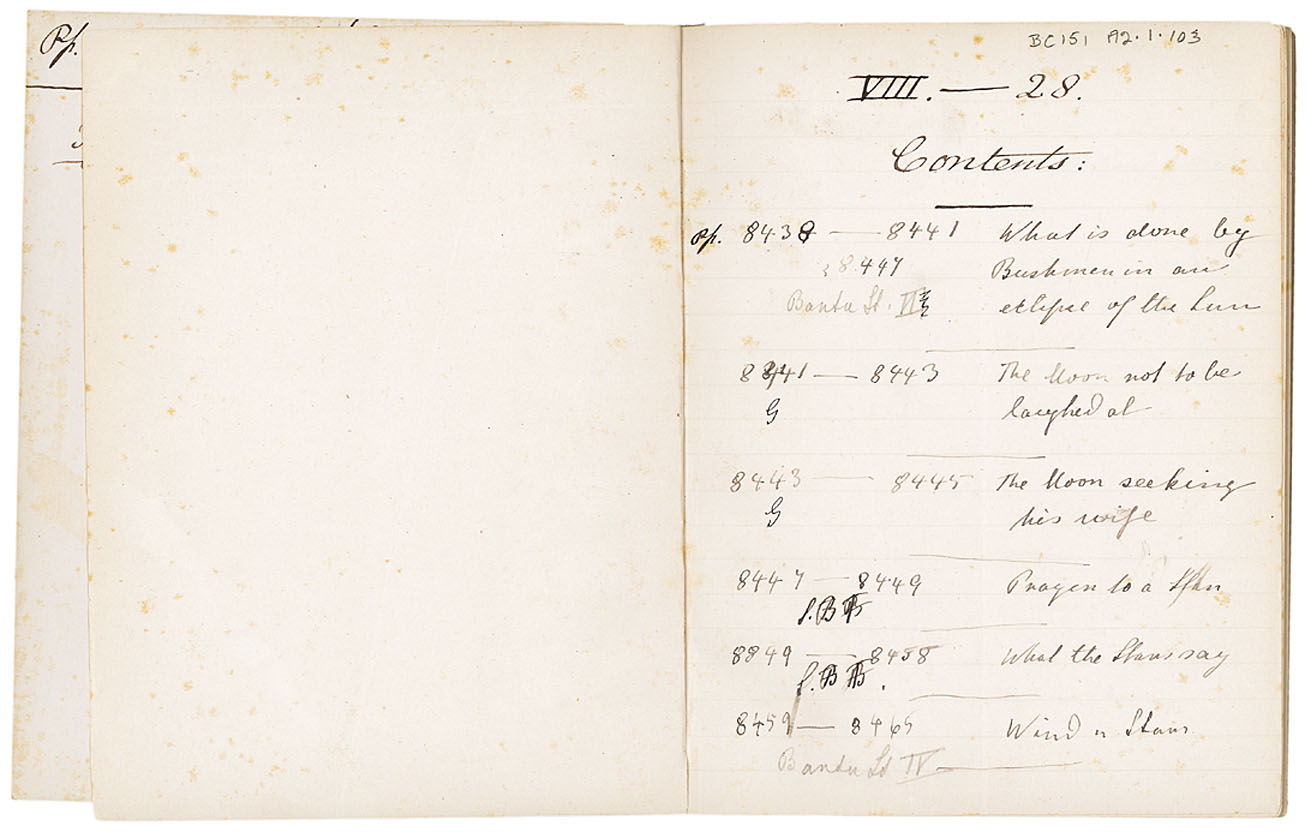 Pp.
BC151 A2.1.103
VIII. — 28.
Contents:
Pp. 8438 — 8441 What is done by
8.447 Bushmen in an
Bantu St. eclipse of the Sun
8441 — 8443 The Moon not to be
G laughed at
8443 — 8445 The Moon seeking
G his wife
8447 — 8449 Prayer to a Star
S.B F
8849 — 8458 What the Stars say
8459 — 8465 Wind Stars
Bantu St IV